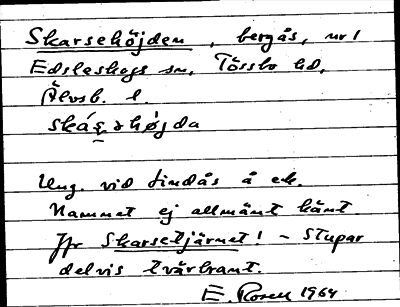 Skarsehöjden, bergås, nr 1
Edsleskogs sn, Tössbo hd,
Älvsb. l.
skás̬ə højda
Ung. vid Lindås å ek.
Namnet ej allmänt känt.
Jfr Skarsetjärnet! – Stupar
delvis tvärbrant.
E. Rosell 1964